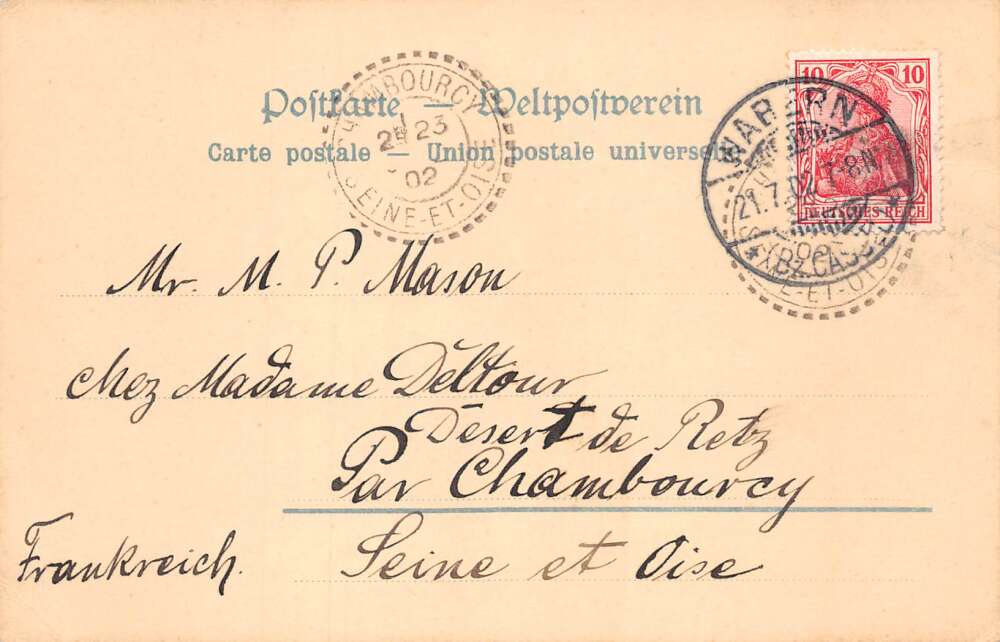 Postkarte — Weltpostverein
Carte postale — Union postale universelle
CHAMBOURCY
23
02
SEINE-ET-OISE
10 10
DEUTSCHES REICH
WABERN
21.7.02 7-8N
* (BZ. CASSEL) *
-ET-OISE
Mr. M. P. Mason
chez Madame Déltour
Désert de Retz
Par Chambourcy
Seine et Oise
Frankreich.